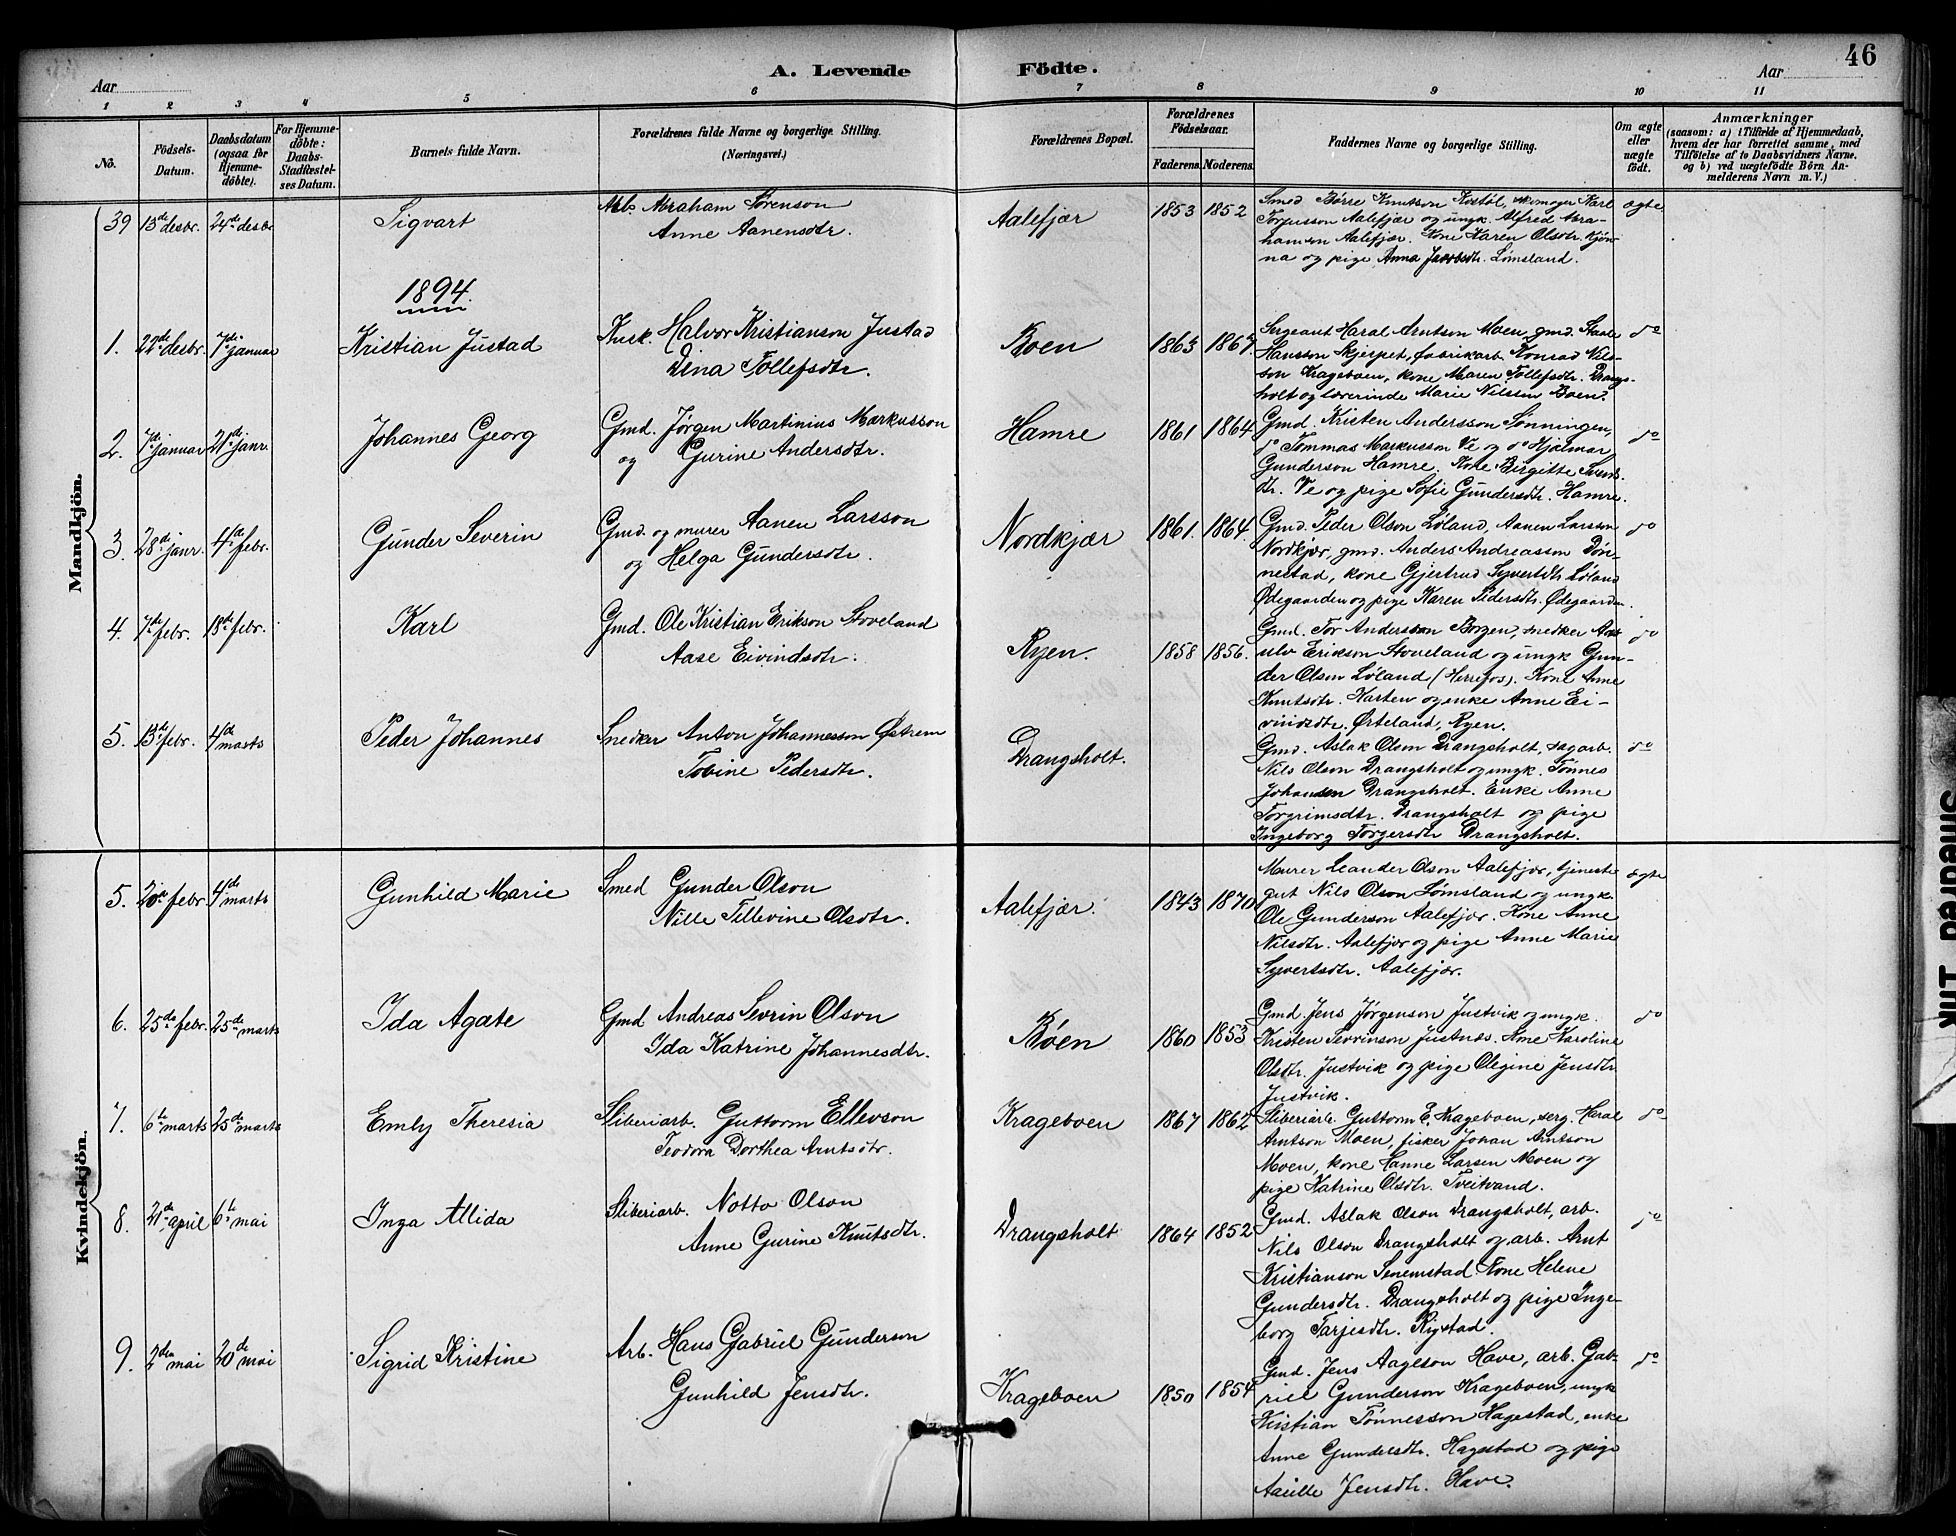 46
A. Levende Födte.
Aar
Aar
1 2 3 4 5 6 7 8 9 10 11
No.
Födsels-
Datum.
Daabsdatum
(ogsaa for
Hjemme-
döbte).
For Hjemme-
döbte:
Daabs-
Stadfæstel-
ses Datum.
Barnets fulde Navn.
Forældrenes fulde Navne og borgerlige Stilling.
(Næringsvei.)
Forældrenes Bopæl.
Forældrenes
Födselsaar.
Faderens. Moderens.
Faddernes Navne og borgerlige Stilling.
Om ægte
eller
uægte
født.
Anmærkninger
(saasom: a) i Tilfælde af Hjemmedaab,
hvem der har forrettet samme, med
Tilføielse af to Daabsvidners Navne.
og b) ved uægtefødte Börn An-
melderens Navn m. V.)
Mandkjön.
39 13de desbr. 24de desbr
Sigvart
Arb. Abraham Sørenson
Anne Aanensdtr.
Aalefjær
1853 1852
Smed Børre Knutson Kostøl, Karl
Torjusson Aalefjær og ungk. Alfred Abra-
hamson Aalefjær. Kone Karen Olsdtr. Kjøn-
na og pige Anna Jacobsdtr. Lømsland.
ægte
1894.
1. 22de desbr. 7de januar
Kristian Justad
Kusk. Halvor Kristianson Justad
Dina Tollefsdtr.
Boen
1863 1867.
Sergeant Haral Arntson Moen, gmd. Staale
Hansson Skjerpet, fabrikarb. Konrad Nils-
son Krageboen, kone Maren Tollefsdtr. Drangs-
holt og lærerinde Marie Nilssen Boen.
do
2. 7de januar 21de janr.
Johannes Georg
Gmd. Jørgen Martinius Markusson
og Gurine Andersdtr.
Hamre
1861 1864
Gmd. Kristen Andersson Sønningen,
do Tommas Markusson Ve og do Hjalmar
Gunderson Hamre. Kone Birgitte Svends-
dtr. Ve og pige Sofie Gundersdtr. Hamre.
do
3. 28de janr. 4de febr.
Gunder Severin
Gmd. og murer Aanen Larsson
og Helga Gundersdtr.
Nordkjær
1861. 1864
Gmd. Peder Olson Løland, Aanen Larsson
Nordkjær, gmd. Anders Andreasson Døn-
nestad, kone Gjertrud Syvertsdtr Løland
Ødegaarden og pige Karen Pedersdtr. Ødegaarden.
do
4. 7de febr. 18de febr.
Karl
Gmd. Ole Kristian Erikson Stoveland
Aase Eivindsdtr.
Ryen.
1858 1856.
Gmd. Tor Andersson Borgen, snedker Aas-
ulv Erikson Stoveland og ungk Gun-
der Olsen Løland (Herrefos). Kone Anne
Knutsdtr. Harten og enke Anne Ei-
vindsdtr. Ørteland, Ryen.
do
5. 13de febr. 4de marts
Peder Johannes
Snedker Anton Johannesson Østrem
Tobine Pedersdtr.
Drangsholt.
Gmd. Aslak Olson Drangsholt, sagarb.
Nils Olson Drangsholt og ungk. Tønnes
Johansen Drangsholt. Enke Anne
Torgrimsdtr. Drangsholt og pige
Ingeborg Torgersdtr Drangsholt.
do
Kvindekjön.
5. 20de febr. 4de marts
Gunhild Marie
Smed Gunder Olson
Nille Tellevine Olsdtr.
Aalefjær.
1843 1870
Murer Leander Olson Aalefjær, tjeneste
gut Nils Olson Lømsland og ungk.
Ole Gunderson Aalefjær. Kone Anne
Nilsdtr. Aalefjær og pige Anne Marie
Syvertsdtr. Aalefjær.
ægte
6. 25de febr. 25de marts
Ida Agate
Gmd Andreas Sevrin Olson
Ida Katrine Johannesdtr.
Boen
1860 1853
Gmd. Jens Jørgenson Justvik og ungk.
Kristen Sevrinson Justnes. Kone Karoline
Olsdtr. Justvik og pige Olegine Jensdtr
Justvik.
do
7. 6te marts 25de marts
Emly Theresia
Sliberiarb. Guttorm Ellevson
Teodora Dorthea Arntsdtr.
Krageboen
1867 1862
Sliberiarb. Guttorm E. Krageboen, serg. Haral
Arntson Moen, fisker Johan Arntson
Moen, kone Hanne Larsen Moen og
pige Katrine Olsdtr. Tveitvand.
do
8. 21de april 6te mai
Inga Allida
Sliberiarb. Notto Olson
Anne Gurine Knutsdtr.
Drangsholt
1864 1852
Gmd. Aslak Olson Drangsholt, arb.
Nils Olson Drangsholt og arb. Arnt
Kristianson Senemstad. Kone Helene
Gundersdtr. Drangsholt og pige Inge-
borg Tarjesdtr. Rigstad.
do
9. 2den mai 20de mai
Sigrid Kristine
Arb. Hans Gabriel Gunderson
Gunhild Jensdtr.
Krageboen
1850 1854
Gmd. Jens Aageson Have, arb. Gab-
riel Gunderson Krageboen, ungk
Kristian Tønnesson Hagestad, enke
Anne Gundersdtr. Hagestad og pige
Jensdtr. Have.
do